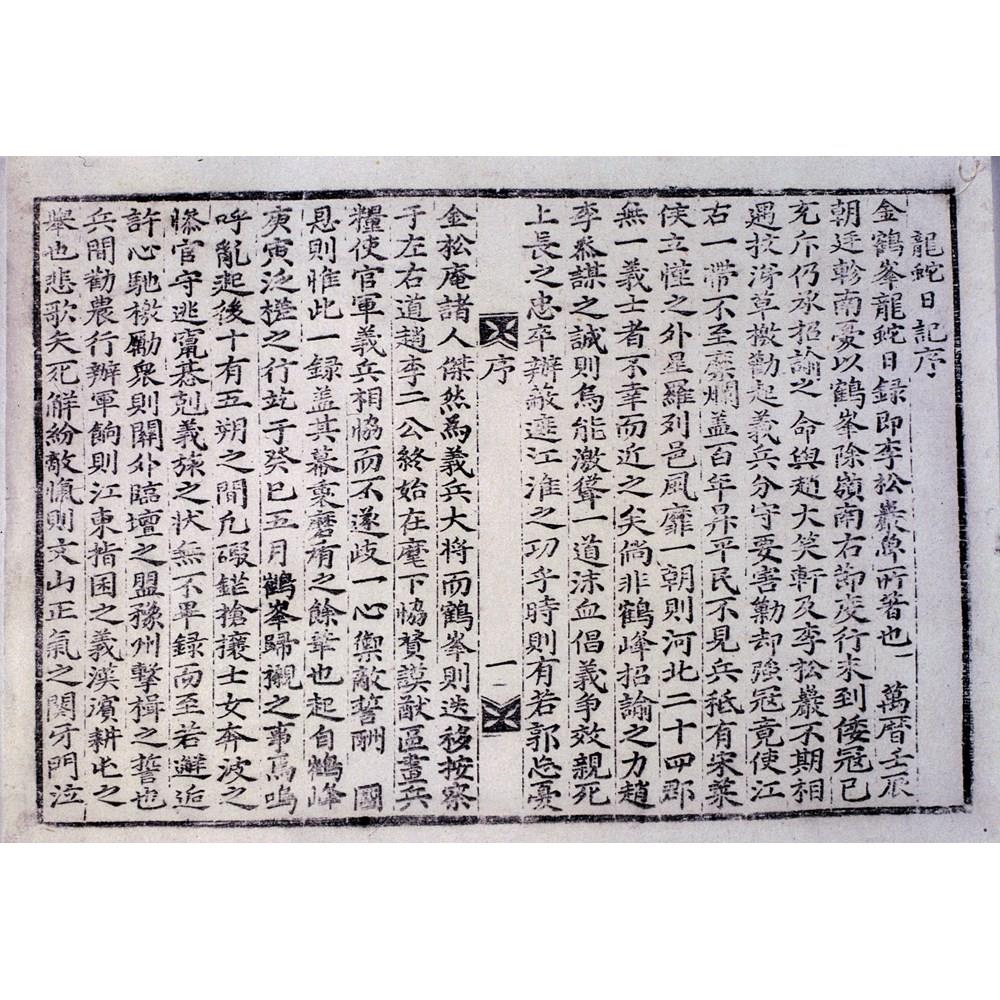 龍蛇日記序
金鶴峯龍蛇日録即李松巖魯所著也 萬曆壬辰
朝廷軫南憂以鶴峯除嶺南右節度行未到倭冦已
充斥仍承招諭之 命與趙大笑軒及李松巖不期相
遇抆涕草檄勸起義兵分守要害勦却強冦竟使江
右一帶不至糜爛盖百年昇平民不見兵秖有宋葉
侯立慬之外星羅列邑風靡一朝則河北二十四郡
無一義士者不幸而近之矣倘非鶴峰招諭之力趙
李叅謀之誠則烏能激聳一道沫血倡義争效親死
上長之忠卒辦蔽遮江淮之功乎時則有若郭忘憂
序
一
金松庵諸人傑然爲義兵大将而鶴峯則迭移按察
于左右道趙李二公終始在麾下恊賛謨猷區畫兵
糧使官軍義兵相恊而不遂歧一心禦敵誓酬 國
恩則惟此一録盖其幕槖磨盾之餘華也起自鶴峰
庚寅泛槎之行訖于癸巳五月鶴峯歸櫬之事焉嗚
呼亂起後十有五朔之間凢礟鎧搶攘士女奔波之
慘官守逃竄碁剋義旅之状無不畢録而至若邂逅
許心馳檄勵衆則閫外臨壇之盟豫州擊楫之誓也
兵間勸農行辦軍餉則江東指囷之義漢濱耕屯之
舉也悲歌矢死觧紛敵愾則文山正氣之闋牙門泣